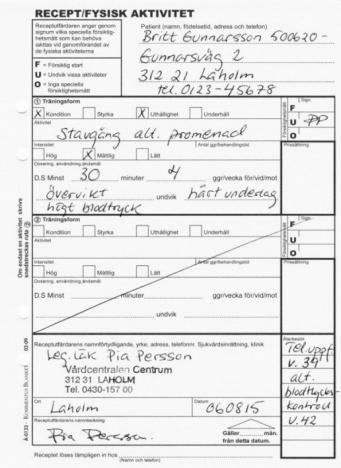 RECEPT/FYSISK AKTIVITET
Receptutfärdaren anger genom
signum vilka speciella försiktig-
hetsmått som kan behöva
iakttas vid genomförandet av
de fysiska aktiviteterna
F = Försiktig start
U = Undvik vissa aktiviteter
O = Inga speciella
försiktighetsmått
Patient (namn, födelsetid, adress och telefon)
Britt Gunnarsson 500620-
Gunnarsväg 2
312 21 Laholm
tel. 0123-45678
1 Träningsform
X Kondition Styrka X Uthållighet Underhåll
Försiktighetsmått
F Sign.
U PP
O
Aktivitet
Stavgång alt. promenad
Intensitet
Hög X Måttlig Lätt
Antal ggr/behandlingstid
Prissättning
Dosering, användning, ändamål
D.S Minst 30 minuter 4 ggr/vecka för/vid/mot
övervikt undvik hårt underlag
högt blodtryck
2 Träningsform
Kondition Styrka Uthållighet Underhåll
Försiktighetsmått
F Sign.
U
O
Aktivitet
Intensitet
Hög Måttlig Lätt
Antal ggr/behandlingstid
Prissättning
Dosering, användning, ändamål
D.S Minst minuter ggr/vecka för/vid/mot
undvik
Om endast en aktivitet skrivs
snedstreckas ruta 2
Receptutfärdarens namnförtydligande, yrke, adress, telefonnr. Sjukvårdsinrättning, klinik
Leg. läk Pia Persson
Vårdcentralen Centrum
312 31 LAHOLM
Tel. 0430-157 00
Återbesök
Tel. uppf
v. 34
alt.
blodtrycks-
kontroll
v. 42
Ort
Laholm
Datum
060815
Receptutfärdarens namnteckning
Pia Persson
Gäller mån.
från detta datum.
Receptet löses lämpligen in hos
(Namn och telefon)